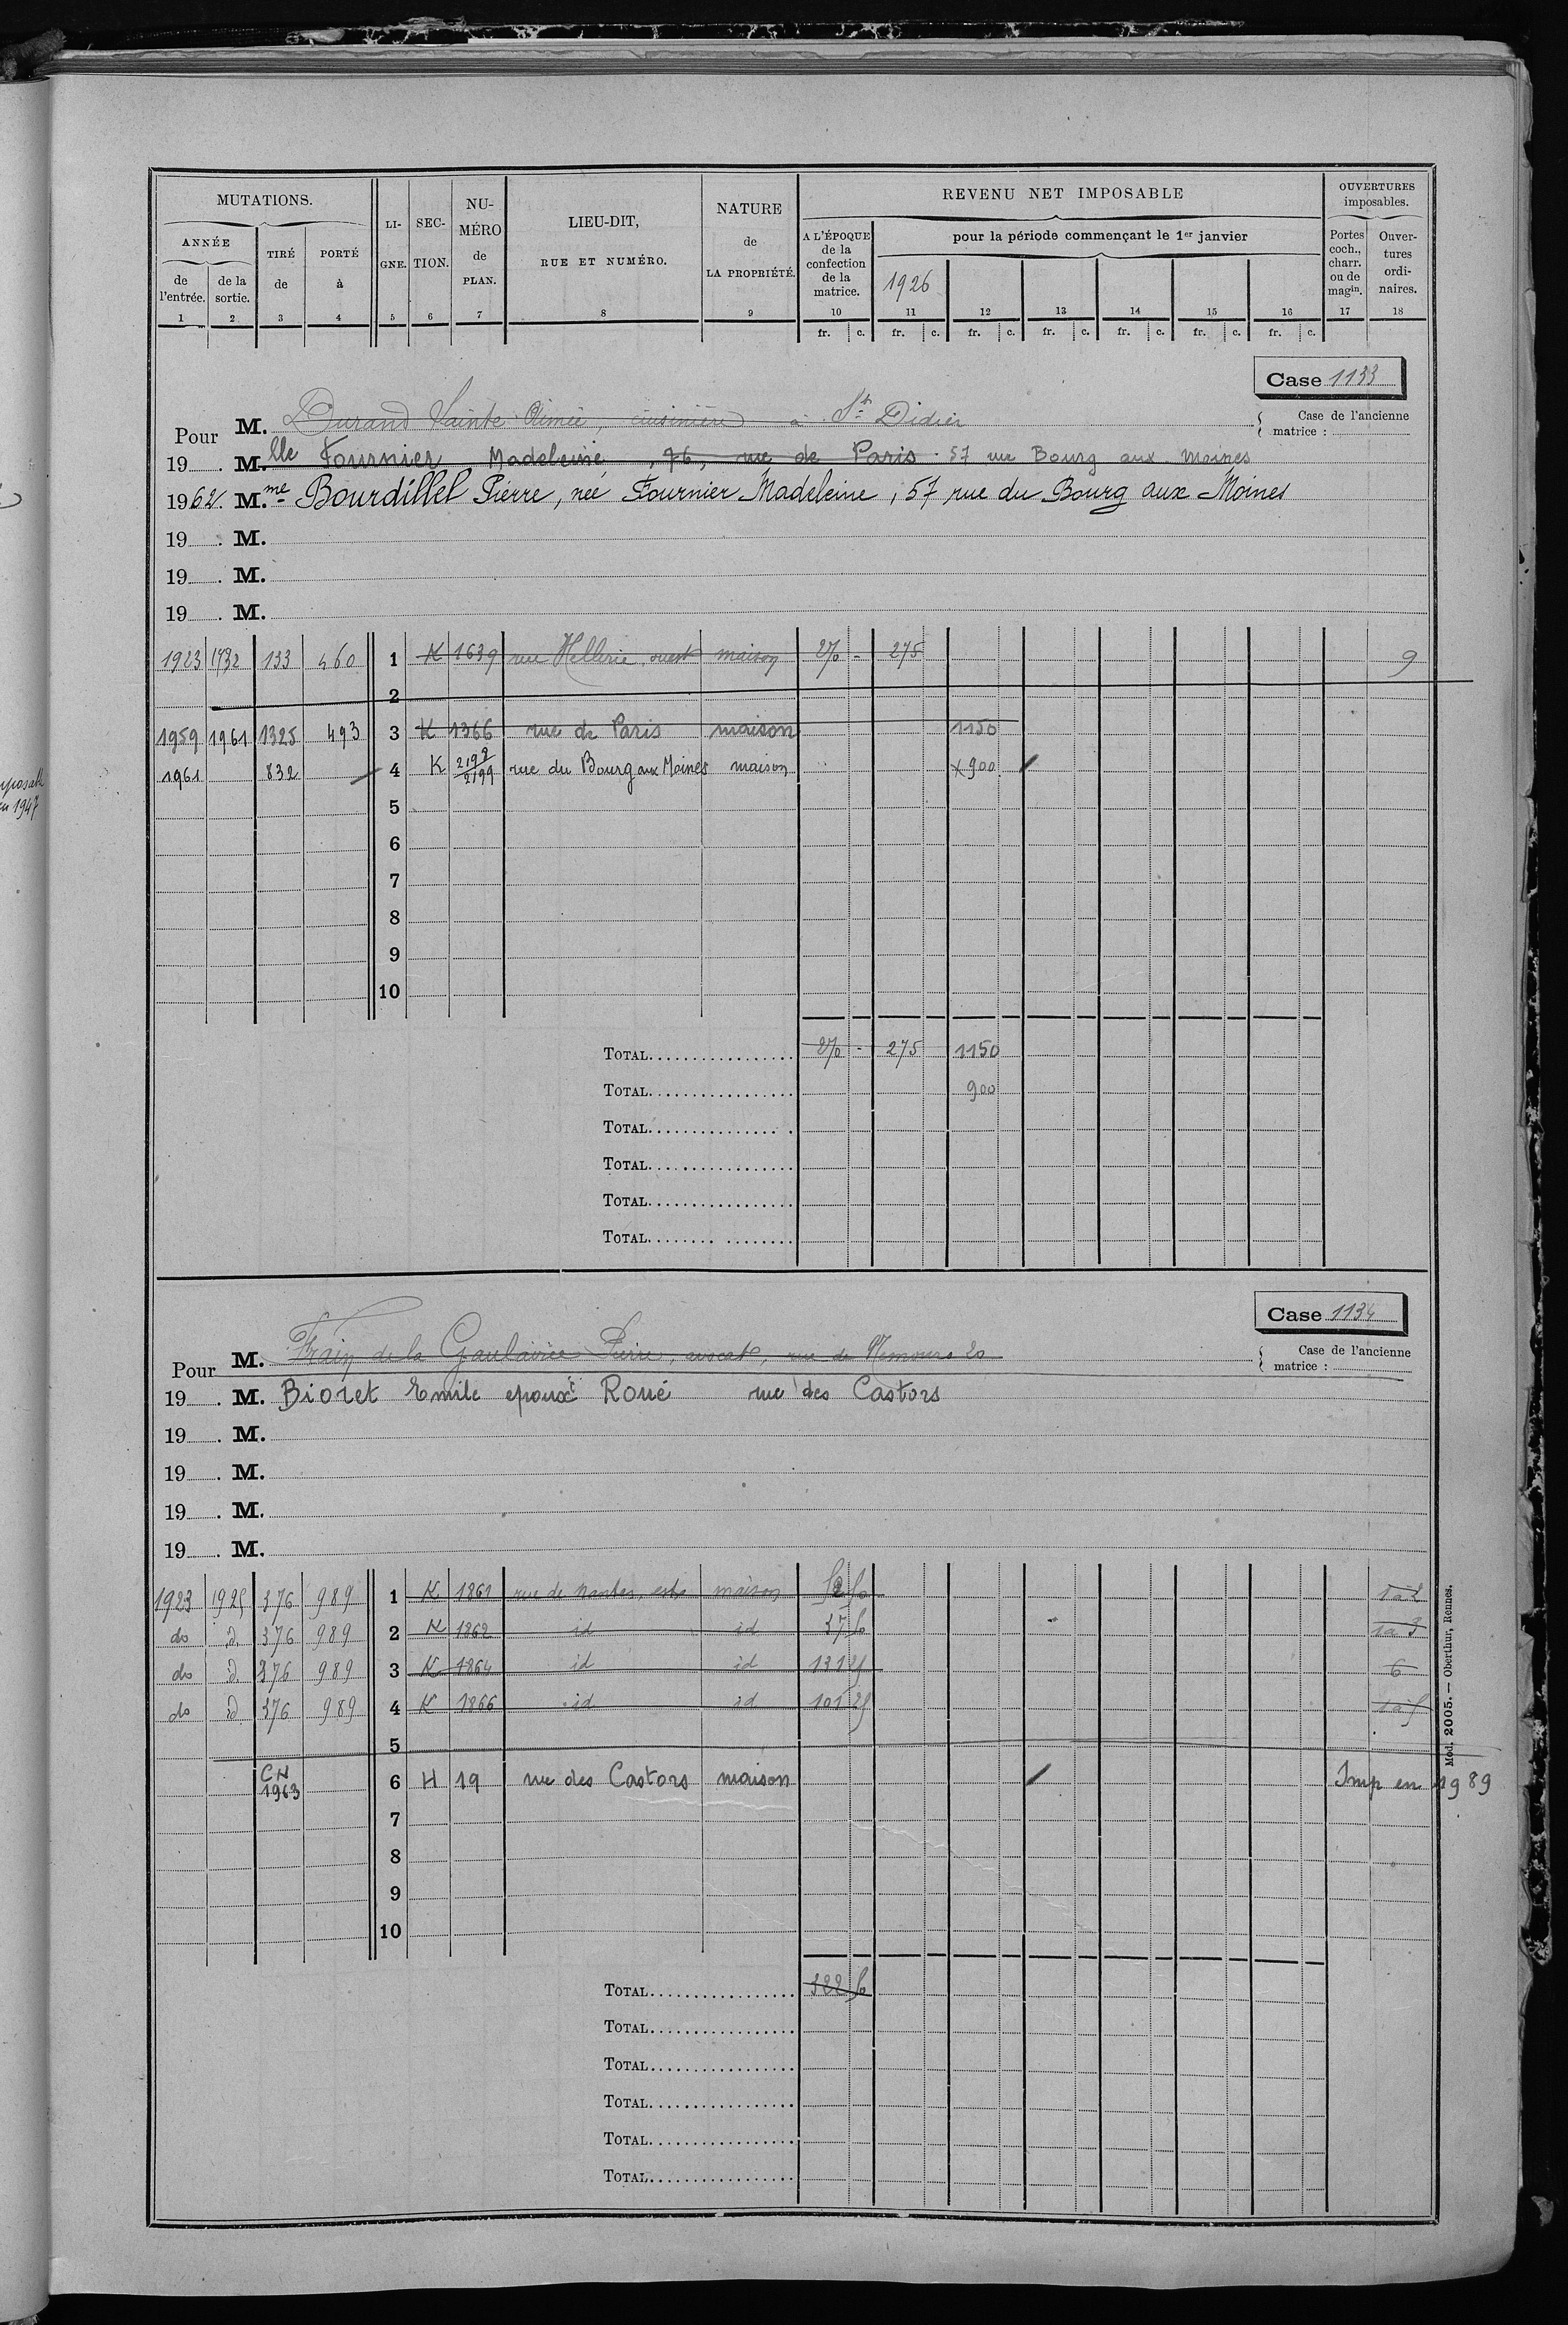 MUTATIONS.
ANNÉE
de l'entrée. 1
de la sortie. 2
TIRÉ de 3
PORTÉ à 4
LIGNE. 5
SECTION. 6
NUMÉRO de PLAN. 7
LIEU-DIT, RUE ET NUMÉRO. 8
NATURE de LA PROPRIÉTÉ. 9
REVENU NET IMPOSABLE
A L'ÉPOQUE de la confection de la matrice. 10
pour la période commençant le 1er janvier
1926
11 12 13 14 15 16
fr. c. fr. c. fr. c. fr. c. fr. c. fr. c. fr. c.
OUVERTURES imposables.
Portes coch., charr. ou de magin. 17
Ouvertures ordinaires. 18
Case 1133
Pour M. Durand Sainte Aimée, cuisinière à St Didier
Case de l'ancienne matrice :
19 . M.lle Fournier Madeleine, 76, rue de Paris 57 rue Bourg aux Moines
1962. M.me Bourdillel Pierre, née Fournier Madeleine, 57 rue du Bourg aux Moines
19 . M.
19 . M.
19 . M.
1923 1932 133 460 1 K 1639 rue Hellerie, ouest maison 270 - 275 9
2
1959 1961 1325 493 3 K 1366 rue de Paris maison 1150
1961 832 4 K 2198/2199 rue du Bourg aux Moines maison x 900
5
6
7
8
9
10
TOTAL 270 - 275 1150
TOTAL 900
TOTAL
TOTAL
TOTAL
TOTAL
Case 1134
Pour M. Frain de la Gaulairie Pierre, avocat, rue de Nemours 20
Case de l'ancienne matrice :
19 . M. Bioret Emile epoux Roué rue des Castors
19 . M.
19 . M.
19 . M.
19 . M.
1923 1925 376 989 1 K 1861 rue de Nantes, est maison 52 50 1à2
do d. 376 989 2 K 1862 id id 37 50 1à3
do d 376 989 3 K 1864 id id 131 25 6
do d 376 989 4 K 1866 id id 101 25 1à5
5
CN 1963 6 H 19 rue des Castors maison Imp en 1989
7
8
9
10
TOTAL 322 50
TOTAL
TOTAL
TOTAL
TOTAL
TOTAL
Mod. 2005. — Oberthur, Rennes.
en 1947